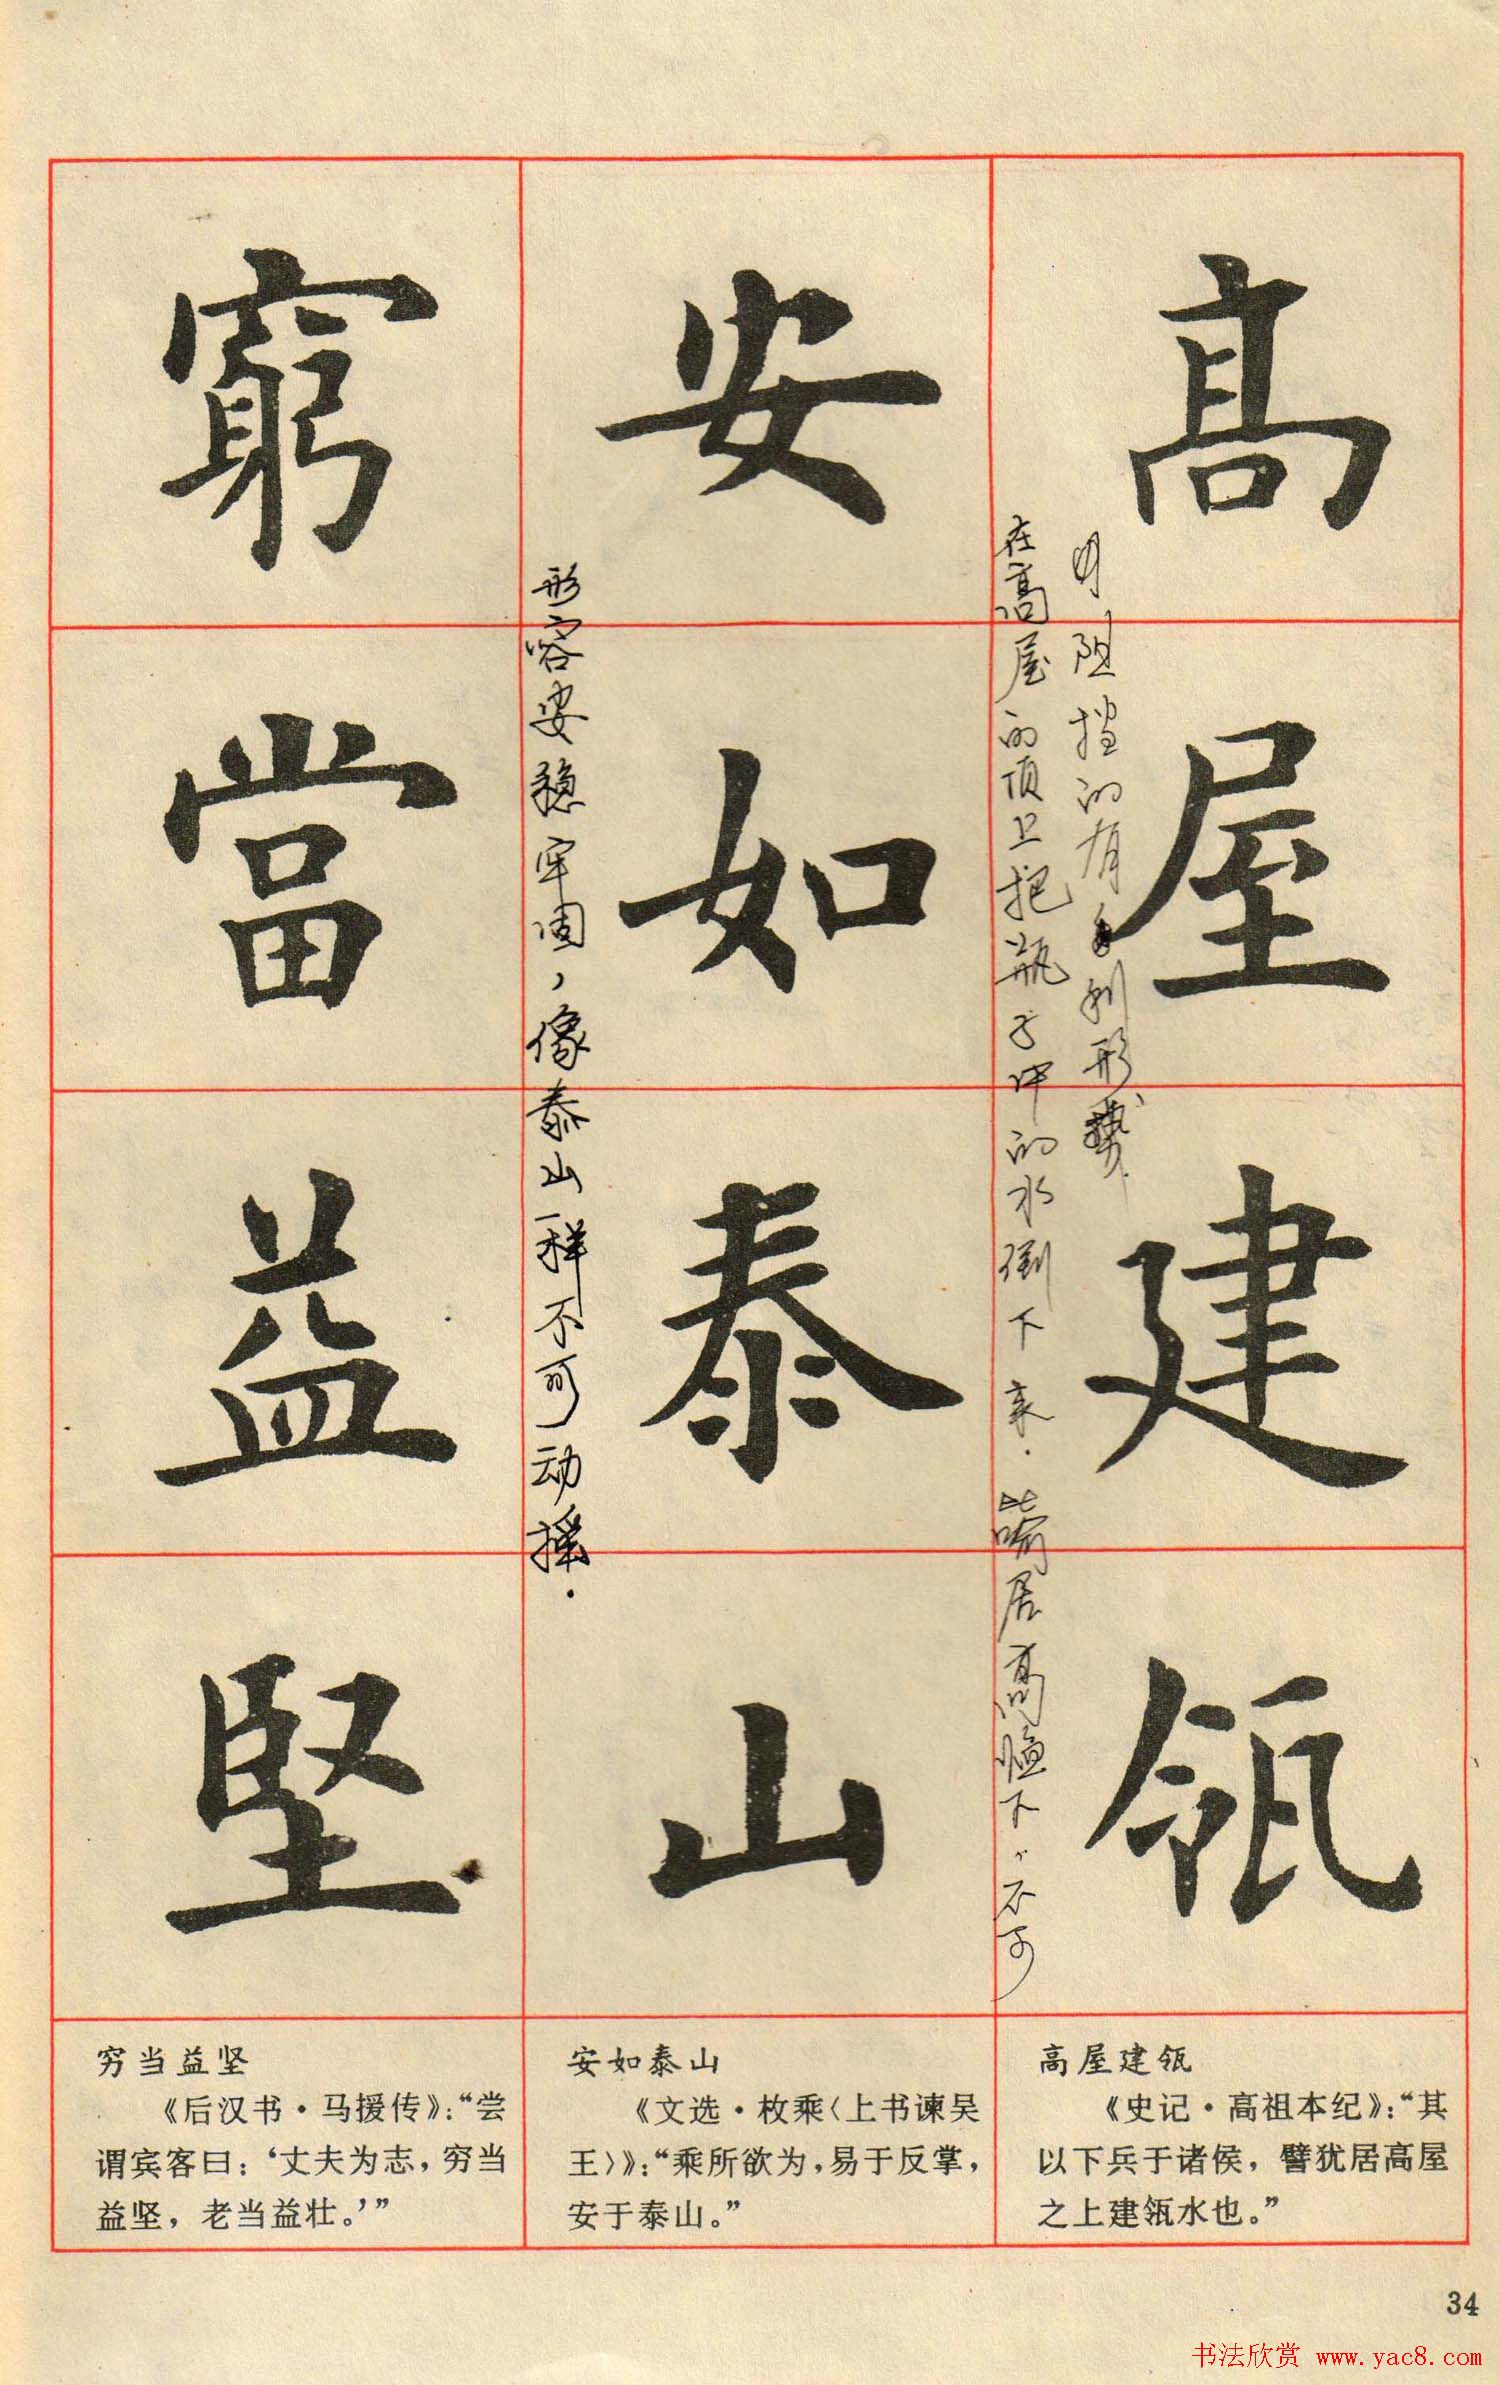 高屋建瓴
安如泰山
窮當益堅
在高屋的顶上把瓶子中的水倒下来.喻居高临下,不可
阻挡的有利形势.
形容安稳牢固,像泰山一样不可动摇.
高屋建瓴
《史记·高祖本纪》:“其
以下兵于诸侯,譬犹居高屋
之上建瓴水也。”
安如泰山
《文选·枚乘〈上书谏吴
王〉》:“乘所欲为,易于反掌,
安于泰山。”
穷当益坚
《后汉书·马援传》:“尝
谓宾客曰:‘丈夫为志,穷当
益坚,老当益壮。’”
34
书法欣赏 www.yac8.com